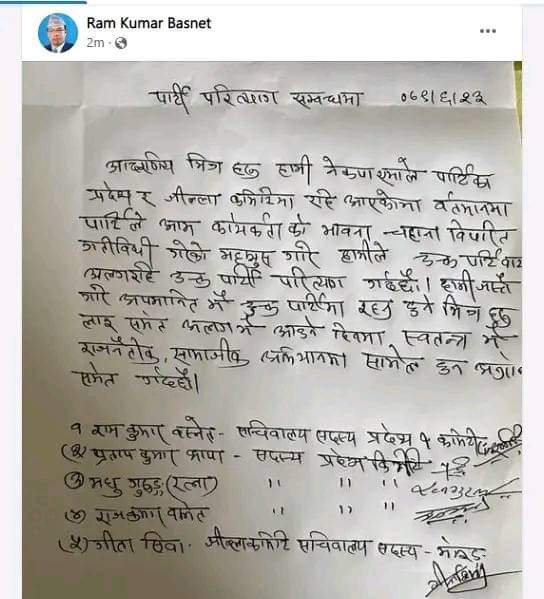 Ram Kumar Basnet
2m
पार्टी परित्याग सम्बन्धमा ०७९/६/२३
आदरणिय मित्र हरु हामी नेकपा एमाले पार्टिका
प्रदेश र जील्ला कमिटिमा रहि आएकोमा वर्तमानमा
पार्टिले आम कार्यकर्ता को भावना चाहाना विपरित
गतीविधी गरेको महसुस गरि हामीले उक्त पार्टि बाट
अलग रहि उक्त पार्टि परित्याग गर्दछौ। हामी जस्तै
गरि अपमानित भै उक्त पार्टिमा रहनु हुने मित्र हरु
लाई समेत अलग भै आउने दिनमा स्वतन्त्र भै
राजनैतीक, सामाजीक अभियानमा सामेल हुन
समेत गर्दछौ।
१ राम कुमार बस्नेत - सचिवालय सदस्य प्रदेश १ कमिटि
(२) प्रताप कुमार थापा - सदस्य प्रदेश कमिटि
(३) मधु गुरुङ (रत्ना) " " "
(४) राजकुमार बस्नेत " " "
(५) गीता सिवा - जील्ला कमिटि सचिवालय सदस्य - मोरङ